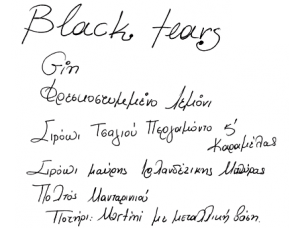 Black tears
Gin
Φρεσκοστυμμένο λεμόνι
Σιρόπι Τσαγιού Περγαμόντο &
Καραμέλας
Σιρόπι μαύρης Ιρλανδέζικης Μπύρας
Πολτός Μανταρινιού
Ποτήρι: Martini με μεταλλική βάση.